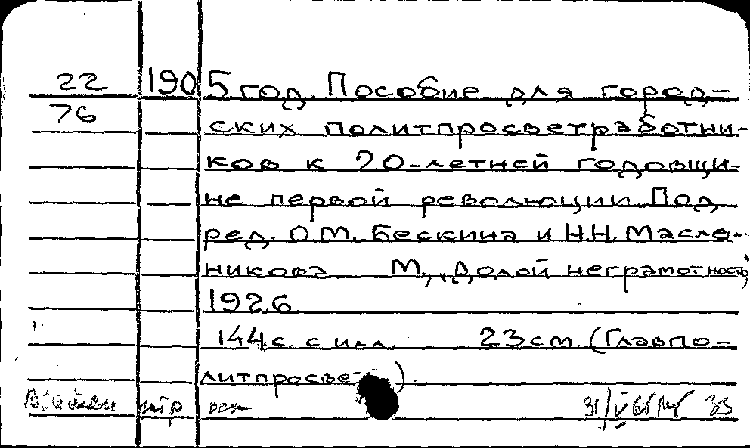 22 1905 год. Пособие для город-
76
ских политпросветработни-
ков к 20-летней годовщи-
не первой революции. Под
ред. О.М. Бескина и Н.Н. Масле-
никова М., „Долой неграмотность"
1926
144 с. с илл. 23 см. (Главпо-
литпросвет).
31/V 33